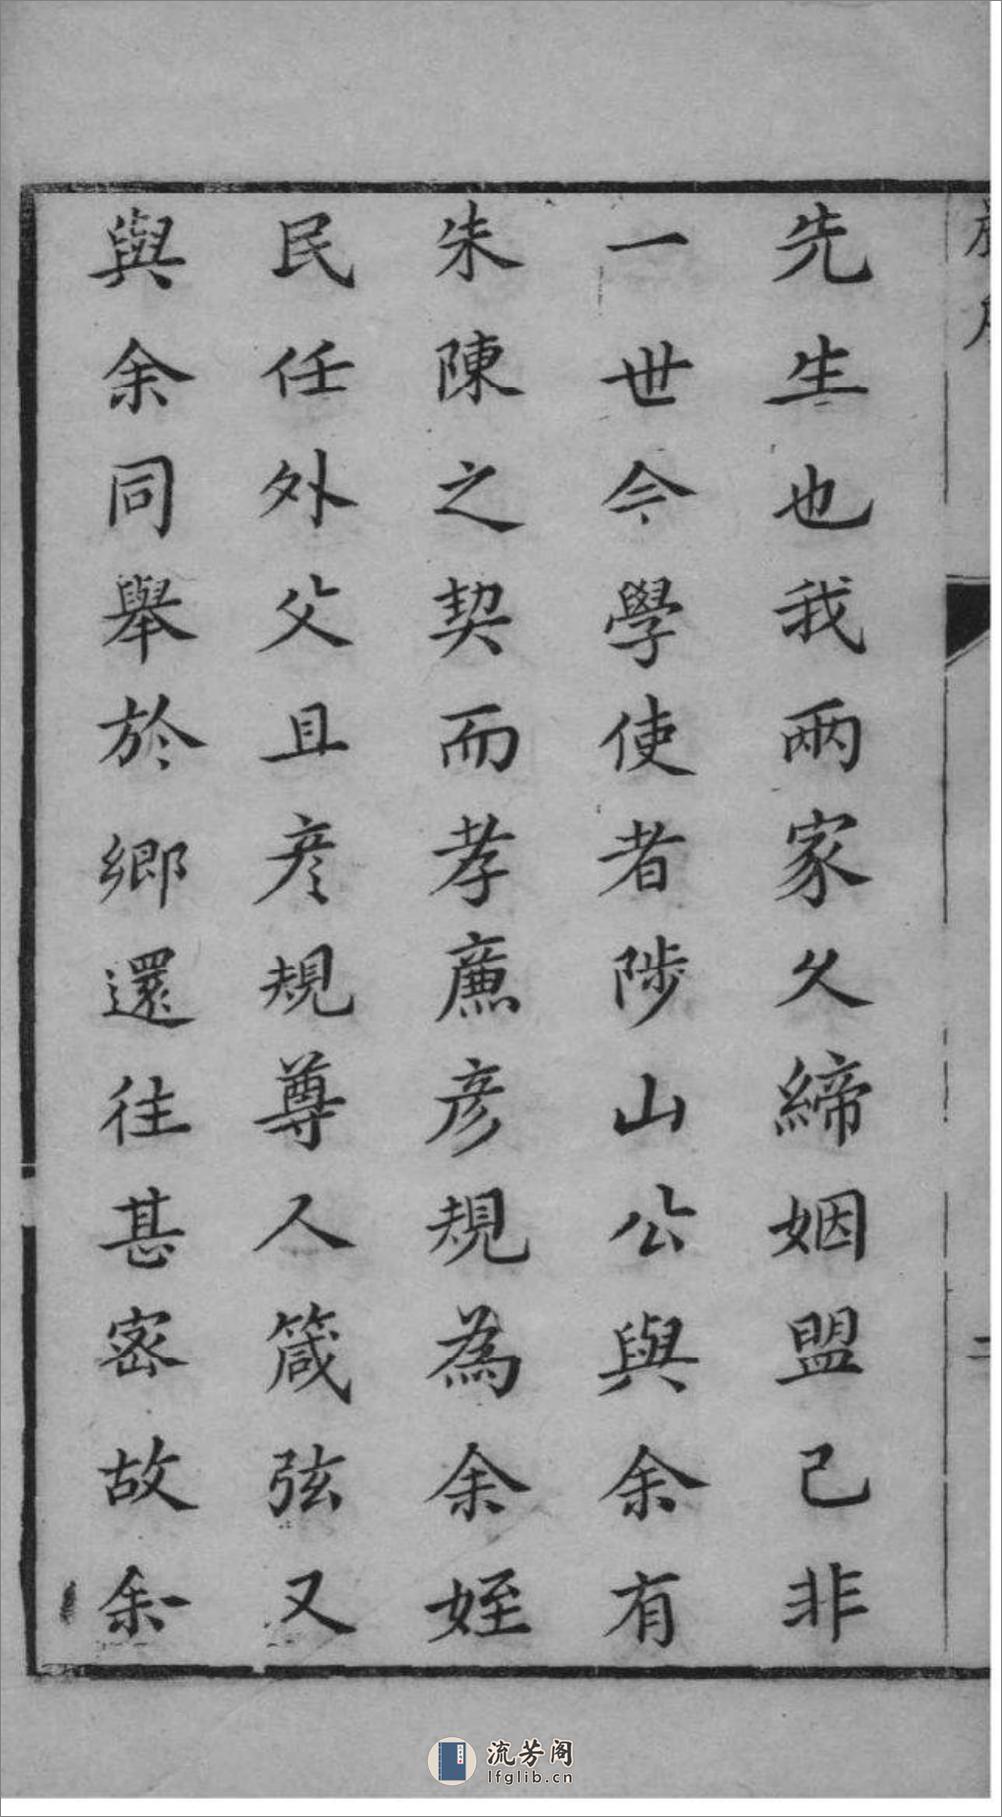 先生也我兩家久締姻盟已非
一世今學使者陟山公與余有
朱陳之契而孝廉彥規為余姪
民任外父且彥規尊人箴弦又
與余同舉於鄉還往甚密故余
流芳阁
lfglib.cn